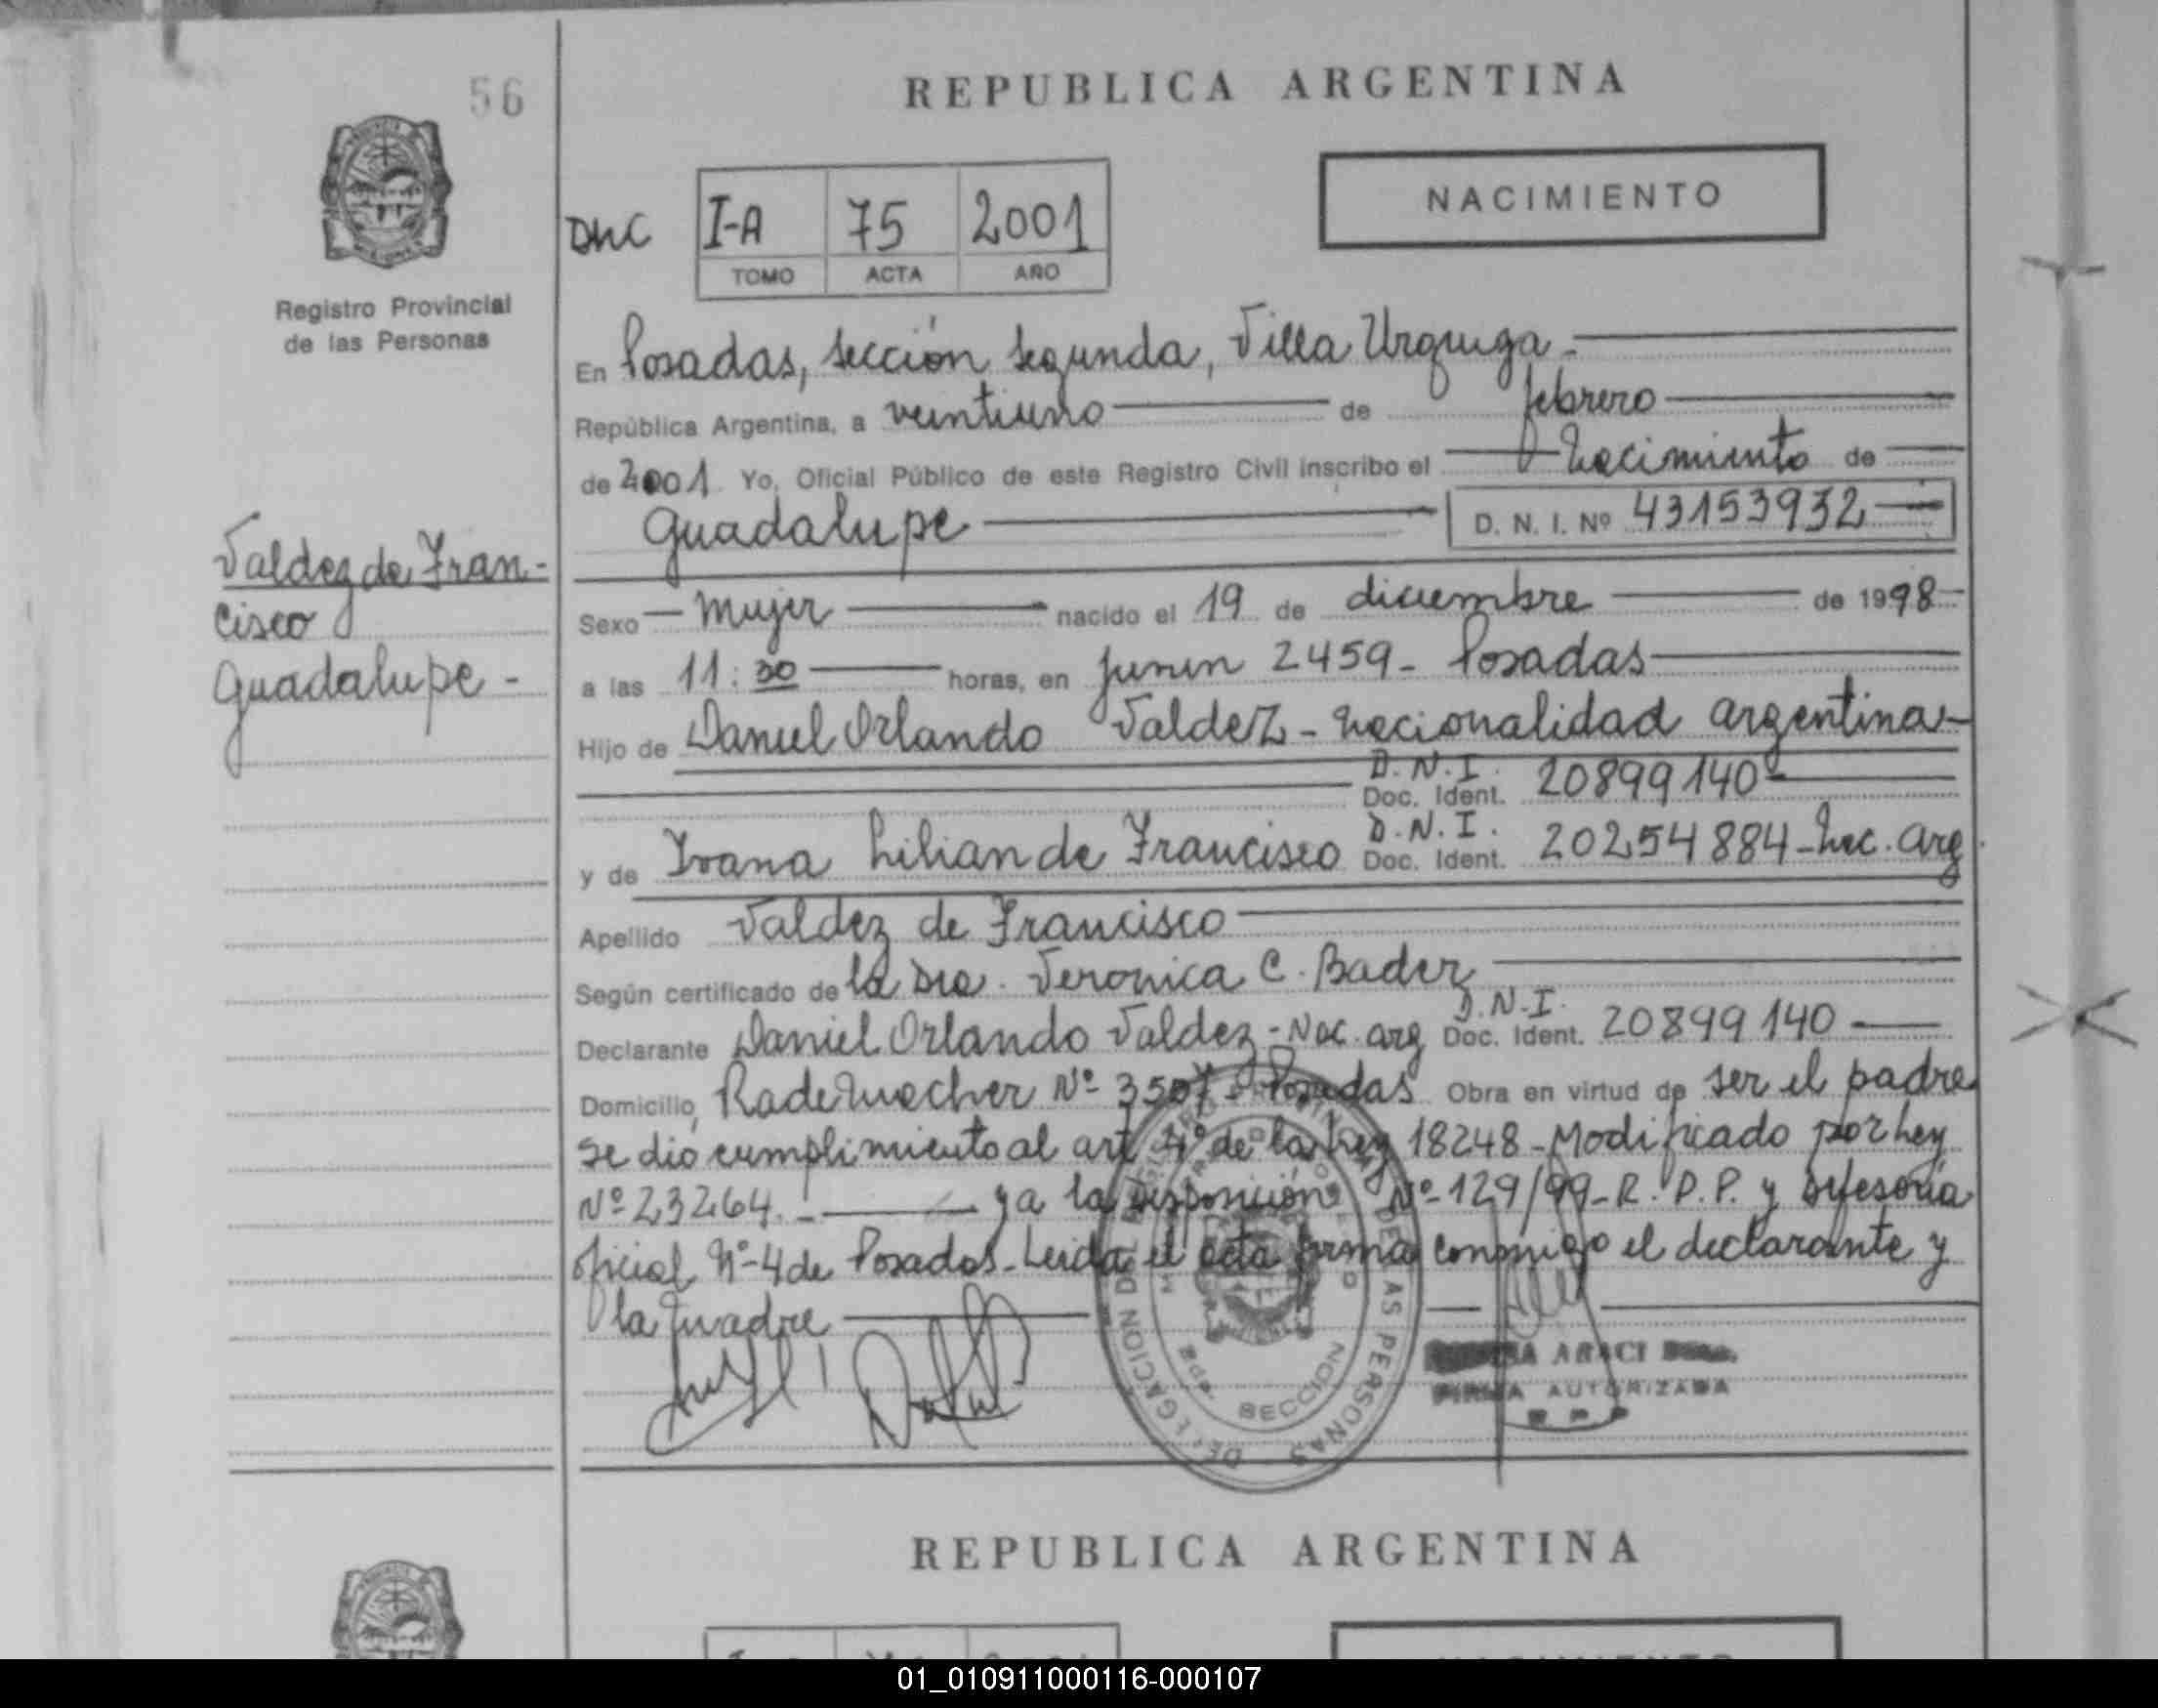 56
REPUBLICA ARGENTINA
NACIMIENTO
DNC I-A 75 2001
TOMO ACTA AÑO
Registro Provincial
de las Personas
En Posadas, sección segunda, Villa Urquiza.
República Argentina, a veintiuno de febrero
de 2001 Yo, Oficial Público de este Registro Civil inscribo el Nacimiento de
Guadalupe D. N. I. Nº 43153932
Valdez de Fran-
cisco
Guadalupe -
Sexo - Mujer nacido el 19 de diciembre de 1998
a las 11:30 horas, en Junin 2459 - Posadas
Hijo de Daniel Orlando Valdez - Nacionalidad argentina -
D.N.I.
Doc. Ident. 20899140 -
D.N.I.
y de Ivana Lilian de Francisco Doc. Ident. 20254884 - Nac. Arg
Apellido Valdez de Francisco
Según certificado de la Dra. Veronica C. Bader
D.N.I.
Declarante Daniel Orlando Valdez - Nac. arg Doc. Ident. 20899140
Domicilio, Rademacher Nº 3507 - Posadas Obra en virtud de ser el padre
se dio cumplimiento al art 4º de la Ley 18248 - Modificado por Ley
Nº 23264. - y a la disposición Nº 129/99 - R.P.P. y Defesoria
oficial Nº 4 de Posadas - Leida el acta firma conmigo el declarante y
la madre
DELEGACION DEL REGISTRO PROVINCIAL DE LAS PERSONAS
SECCION
ARACI
FIRMA AUTORIZADA
R P P
REPUBLICA ARGENTINA
01_010911000116-000107